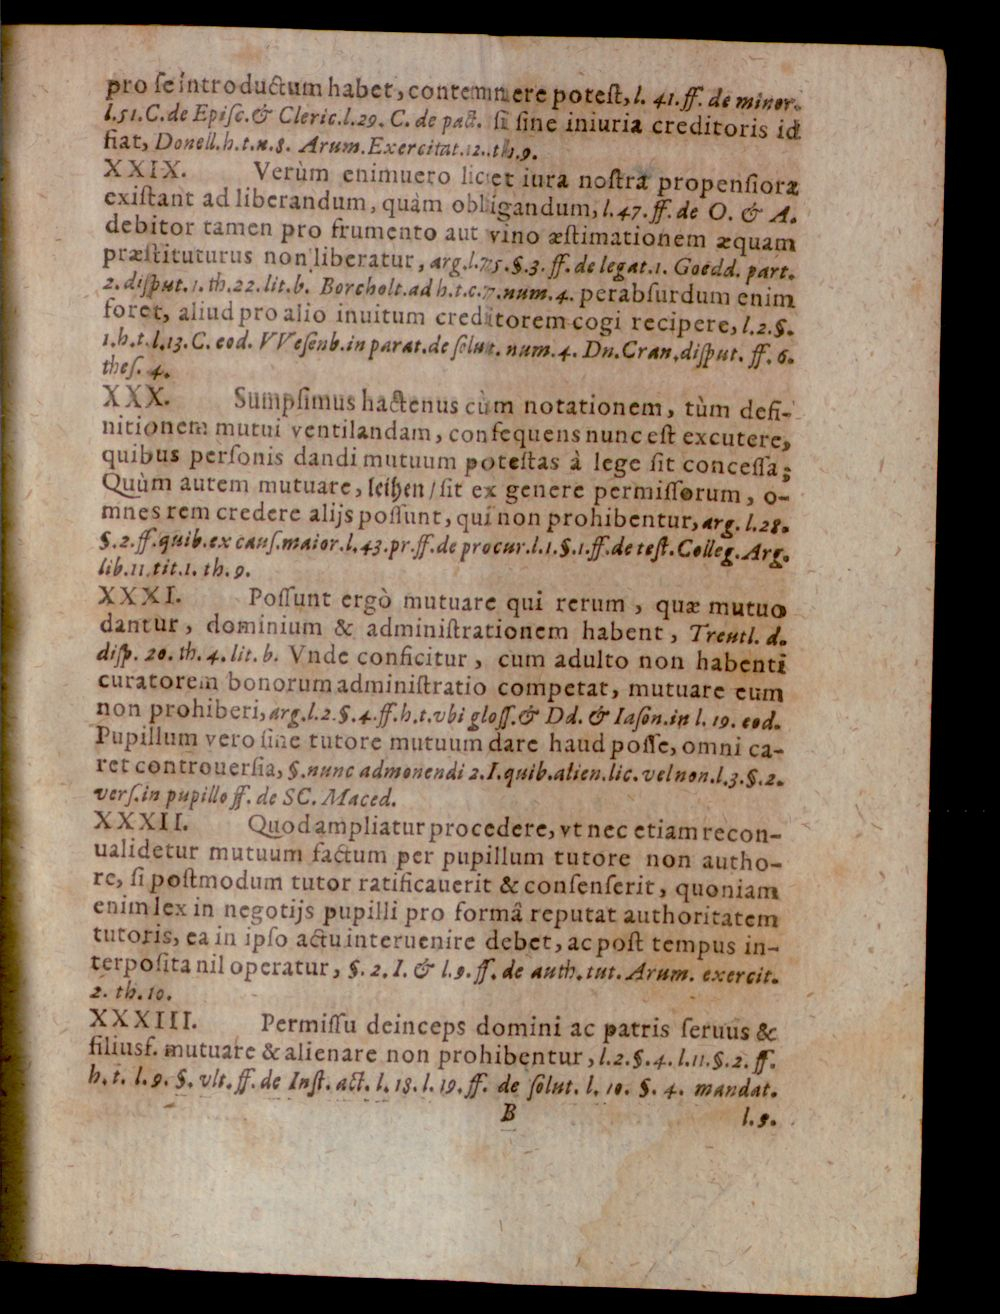 pro ſe introductum habet, contemnere poteſt, l. 41. ff. de minor.
l. 51. C. de Epiſc. & Cleric. l. 29. C. de pact. ſi ſine iniuria creditoris id
fiat, Donell. h. t. n. 8. Arum. Exercitat. 12. th. 9.
XXIX. Verùm enimuero licet iura noſtra propenſiora
exiſtant ad liberandum, quàm obligandum, l. 47. ff. de O. & A.
debitor tamen pro frumento aut vino æſtimationem æquam
præſtituturus non liberatur, arg. l. 75. §. 3. ff. de legat. 1. Goedd. part.
2. diſput. 1. th. 22. lit. b. Borcholt. ad h. t. c. 7. num. 4. perabſurdum enim
foret, aliud pro alio inuitum creditorem cogi recipere, l. 2. §.
1. h. t. l. 13. C. eod. VVeſenb. in parat. de ſolut. num. 4. Dn. Cran. diſput. ff. 6.
theſ. 4.
XXX. Sumpſimus hactenus cùm notationem, tùm defi-
nitionem mutui ventilandam, conſequens nunc eſt excutere,
quibus perſonis dandi mutuum poteſtas à lege ſit conceſſa;
Quùm autem mutuare, leihen / ſit ex genere permiſſorum, o-
mnes rem credere alijs poſſunt, qui non prohibentur, arg. l. 28.
§. 2. ff. quib. ex cauſ. maior. l. 43. pr. ff. de procur. l. 1. §. 1. ff. de teſt. Colleg. Arg.
lib. 11. tit. 1. th. 9.
XXXI. Poſſunt ergò mutuare qui rerum, quæ mutuo
dantur, dominium & adminiſtrationem habent, Treutl. d.
diſp. 20. th. 4. lit. b. Vnde conficitur, cum adulto non habenti
curatorem bonorum adminiſtratio competat, mutuare eum
non prohiberi, arg. l. 2. §. 4. ff. h. t. vbi gloſſ. & Dd. & Iaſon. in l. 19. eod.
Pupillum vero ſine tutore mutuum dare haud poſſe, omni ca-
ret controuerſia, §. nunc admonendi 2. I. quib. alien. lic. vel non. l. 3. §. 2.
verſ. in pupillo ff. de SC. Maced.
XXXII. Quod ampliatur procedere, vt nec etiam recon-
ualidetur mutuum factum per pupillum tutore non autho-
re, ſi poſtmodum tutor ratificauerit & conſenſerit, quoniam
enim lex in negotijs pupilli pro formâ reputat authoritatem
tutoris, ea in ipſo actu interuenire debet, ac poſt tempus in-
terpoſita nil operatur, §. 2. I. & l. 9. ff. de auth. tut. Arum. exercit.
2. th. 10.
XXXIII. Permiſſu deinceps domini ac patris ſeruus &
filiusf. mutuare & alienare non prohibentur, l. 2. §. 4. l. 11. §. 2. ff.
h. t. l. 9. §. vlt. ff. de Inſt. act. l. 18. l. 19. ff. de ſolut. l. 10. §. 4. mandat.
B l. 9.